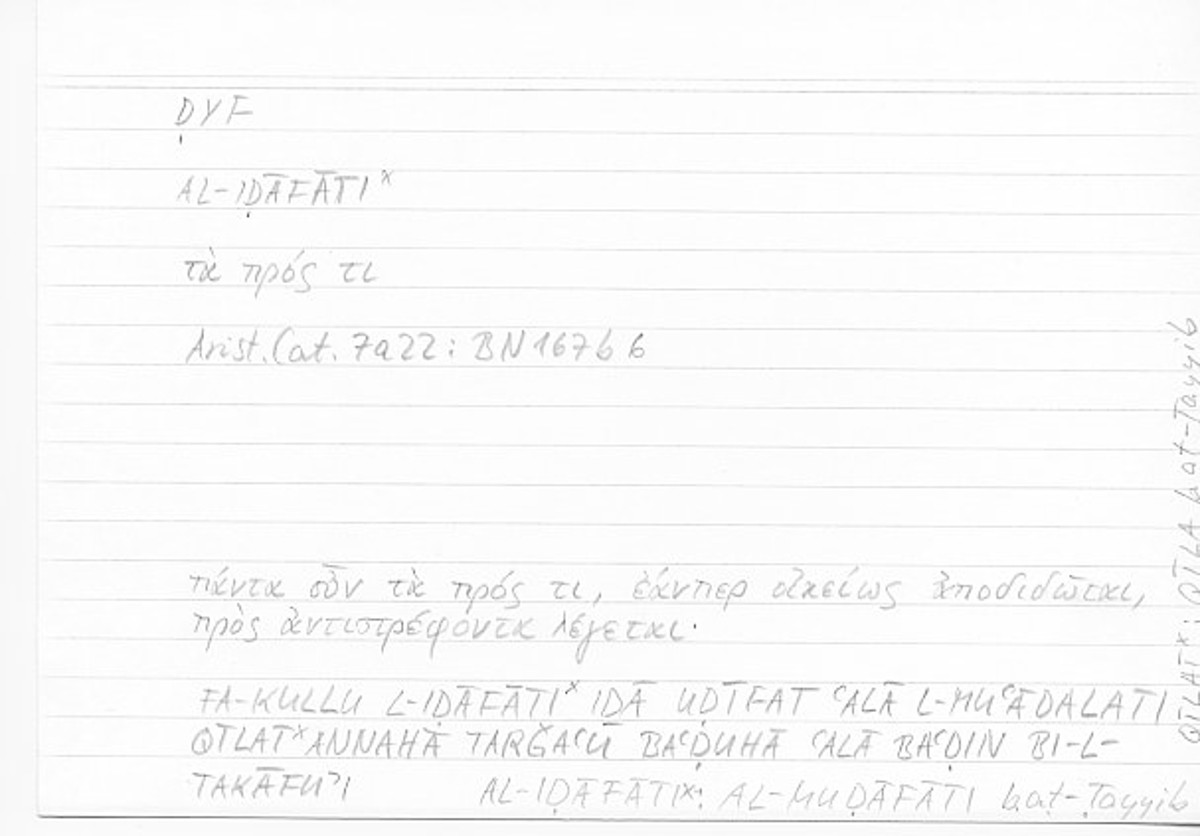 ḌYF
AL-IḌĀFĀTIˣ
τὰ πρός τι
Arist. Cat. 7a22 : BN 167b 6
πάντα οὖν τὰ πρός τι, ἐάνπερ οἰκείως ἀποδιδῶται,
πρὸς ἀντιστρέφοντα λέγεται·
FA-KULLU L-IḌĀFĀTIˣ IḎĀ UḌĪFAT ʿALĀ L-MUʿĀDALATI
QĪLATˣ ANNAHĀ TARǦAʿU BAʿḌUHĀ ʿALĀ BAʿḌIN BI-L-
TAKĀFUʾI AL-IḌĀFĀTIˣ: AL-MUḌĀFĀTI b.aṭ-Ṭayyib
QĪLATˣ: QĪLA b.aṭ-Ṭayyib